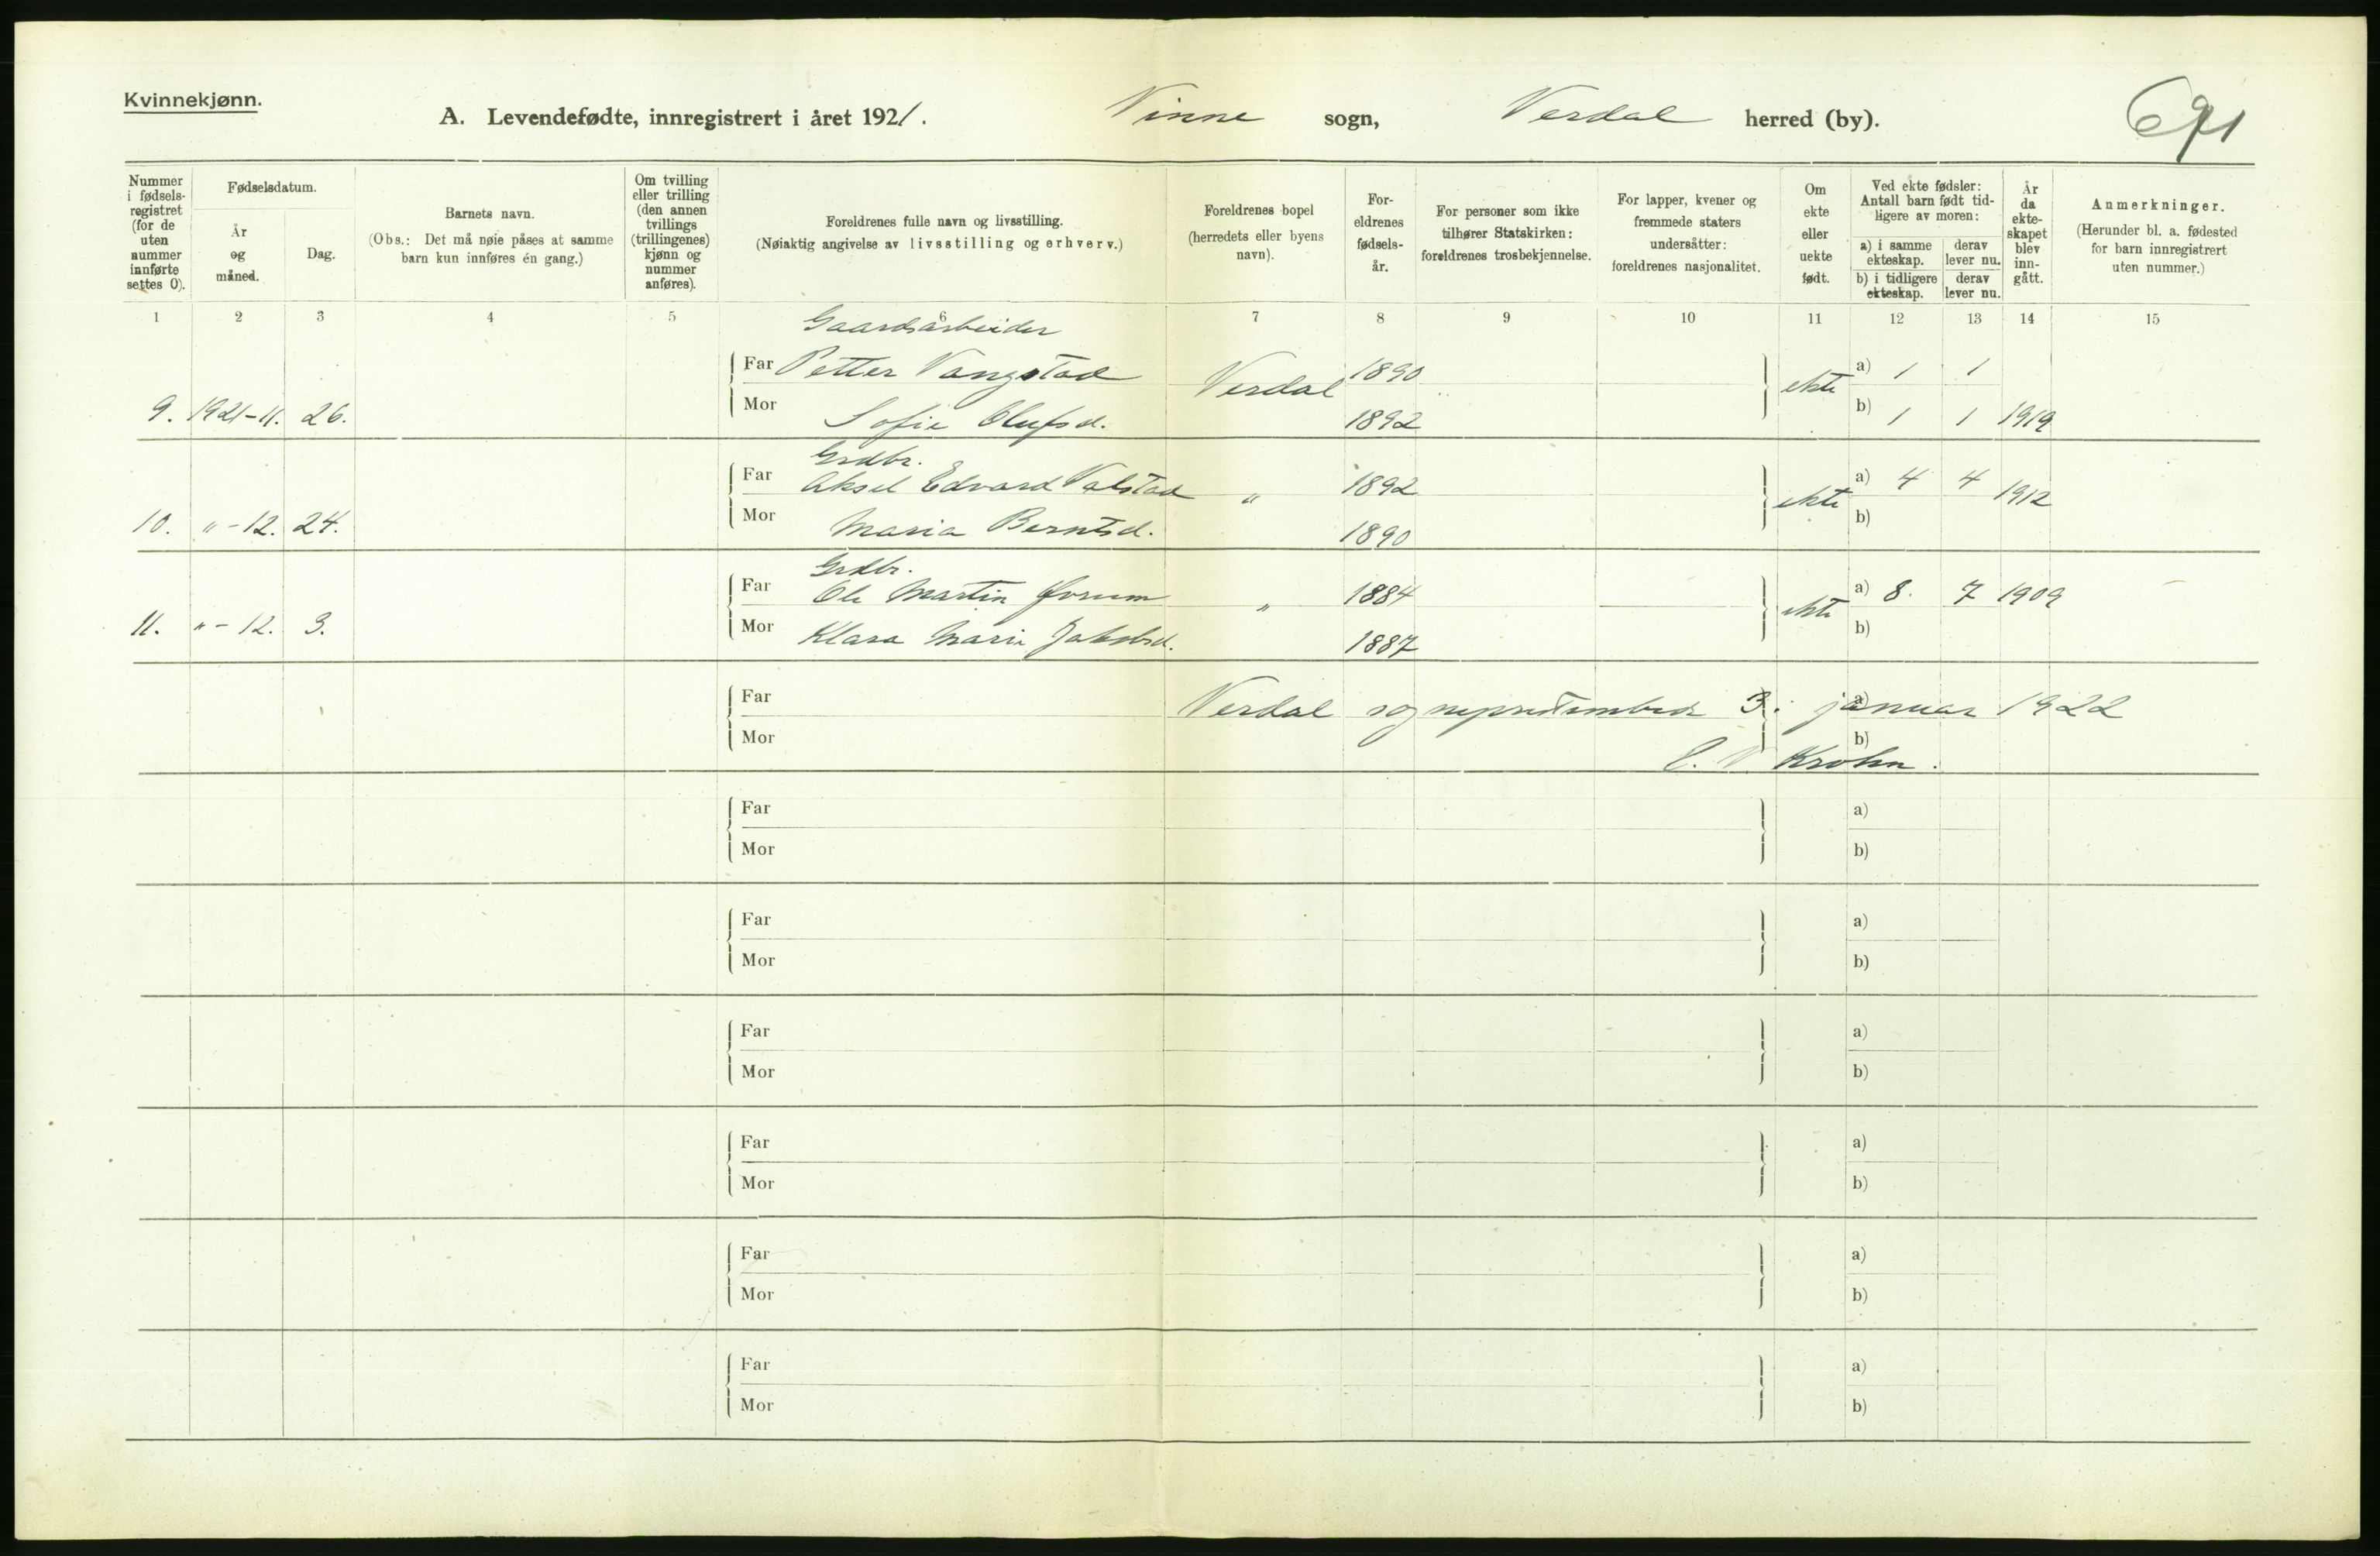 Kvinnekjønn.
A. Levendefødte, innregistrert i året 1921. Vinne sogn, Verdal herred (by).
Nummer i fødsels-registret (for de uten nummer innførte settes 0).
Fødselsdatum.
År og måned.
Dag.
Barnets navn.
(Obs.: Det må nøie påses at samme barn kun innføres én gang.)
Om tvilling eller trilling (den annen tvillings (trillingenes) kjønn og nummer anføres).
Foreldrenes fulle navn og livsstilling.
(Nøiaktig angivelse av livsstilling og erhverv.)
Foreldrenes bopel (herredets eller byens navn).
For-eldrenes fødsels-år.
For personer som ikke tilhører Statskirken: foreldrenes trosbekjennelse.
For lapper, kvener og fremmede staters undersåtter: foreldrenes nasjonalitet.
Om ekte eller uekte født.
Ved ekte fødsler: Antall barn født tid-ligere av moren:
a) i samme ekteskap. derav lever nu.
b) i tidligere ekteskap. derav lever nu.
År da ekte-skapet blev inn-gått.
Anmerkninger.
(Herunder bl. a. fødested for barn innregistrert uten nummer.)
1 2 3 4 5 6 7 8 9 10 11 12 13 14 15
Gaardsarbeider
Far Petter Vangstad Verdal 1890 ekte a) 1 1
9. 1921-11. 26. Mor Sofie Olufsd. 1892 b) 1 1 1919
Grdbr.
Far Aksel Edvard Valstad " 1892 ekte a) 4 4 1912
10. "-12. 24. Mor Maria Berntsd. 1890 b)
Grdbr.
Far Ole Martin Ørum " 1884 ekte a) 8. 7 1909
11. "-12. 3. Mor Klara Marie Jakobsd. 1887 b)
Far Verdal sogneprestembede 3. januar 1922 a)
Mor b)
Krohn.
Far a)
Mor b)
Far a)
Mor b)
Far a)
Mor b)
Far a)
Mor b)
Far a)
Mor b)
Far a)
Mor b)